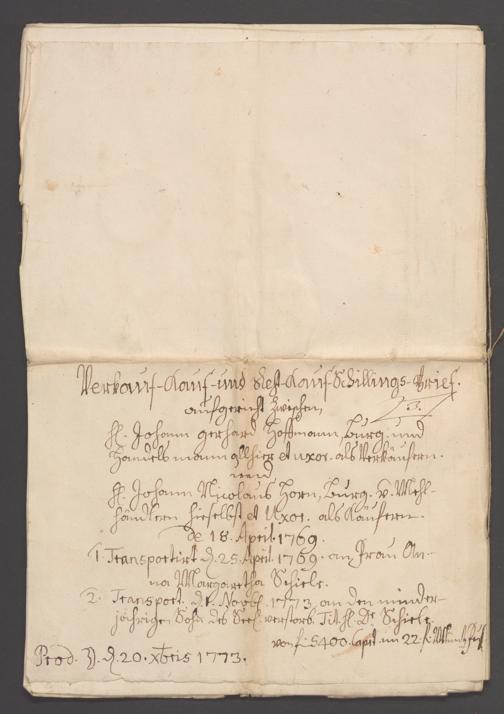 Verkauf-Kauf-und Rest-Kauf Schillings-Brief.
aufgericht zwischen,
H. Johann Gerhard Hoffmann, Burg. und
Handelsmann allhier et uxor. als Verkäufern.
und
H. Johann Nicolaus Horn, Burg. v. Mehl-
händlern hieselbst et Uxor. als Käufern.
de 18. April. 1769.
1. Transportirt d. 25. April 1769. an Frau An-
na Margaretha Schiele.
2. Transport. d. 1. Novbr. 1773 an den minder-
jährigen Sohn des Seel. verstorb. Tit. H. Dr. Schiele
von f. 5400. Capit. im 22. f.
Prod. d. 20. Xbris 1773.